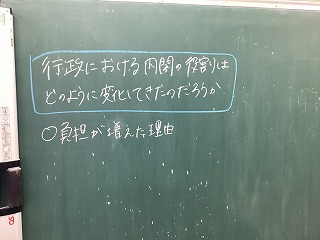 行政における内閣の役割りは
どのように変化してきたのだろうか
○負担が増えた理由